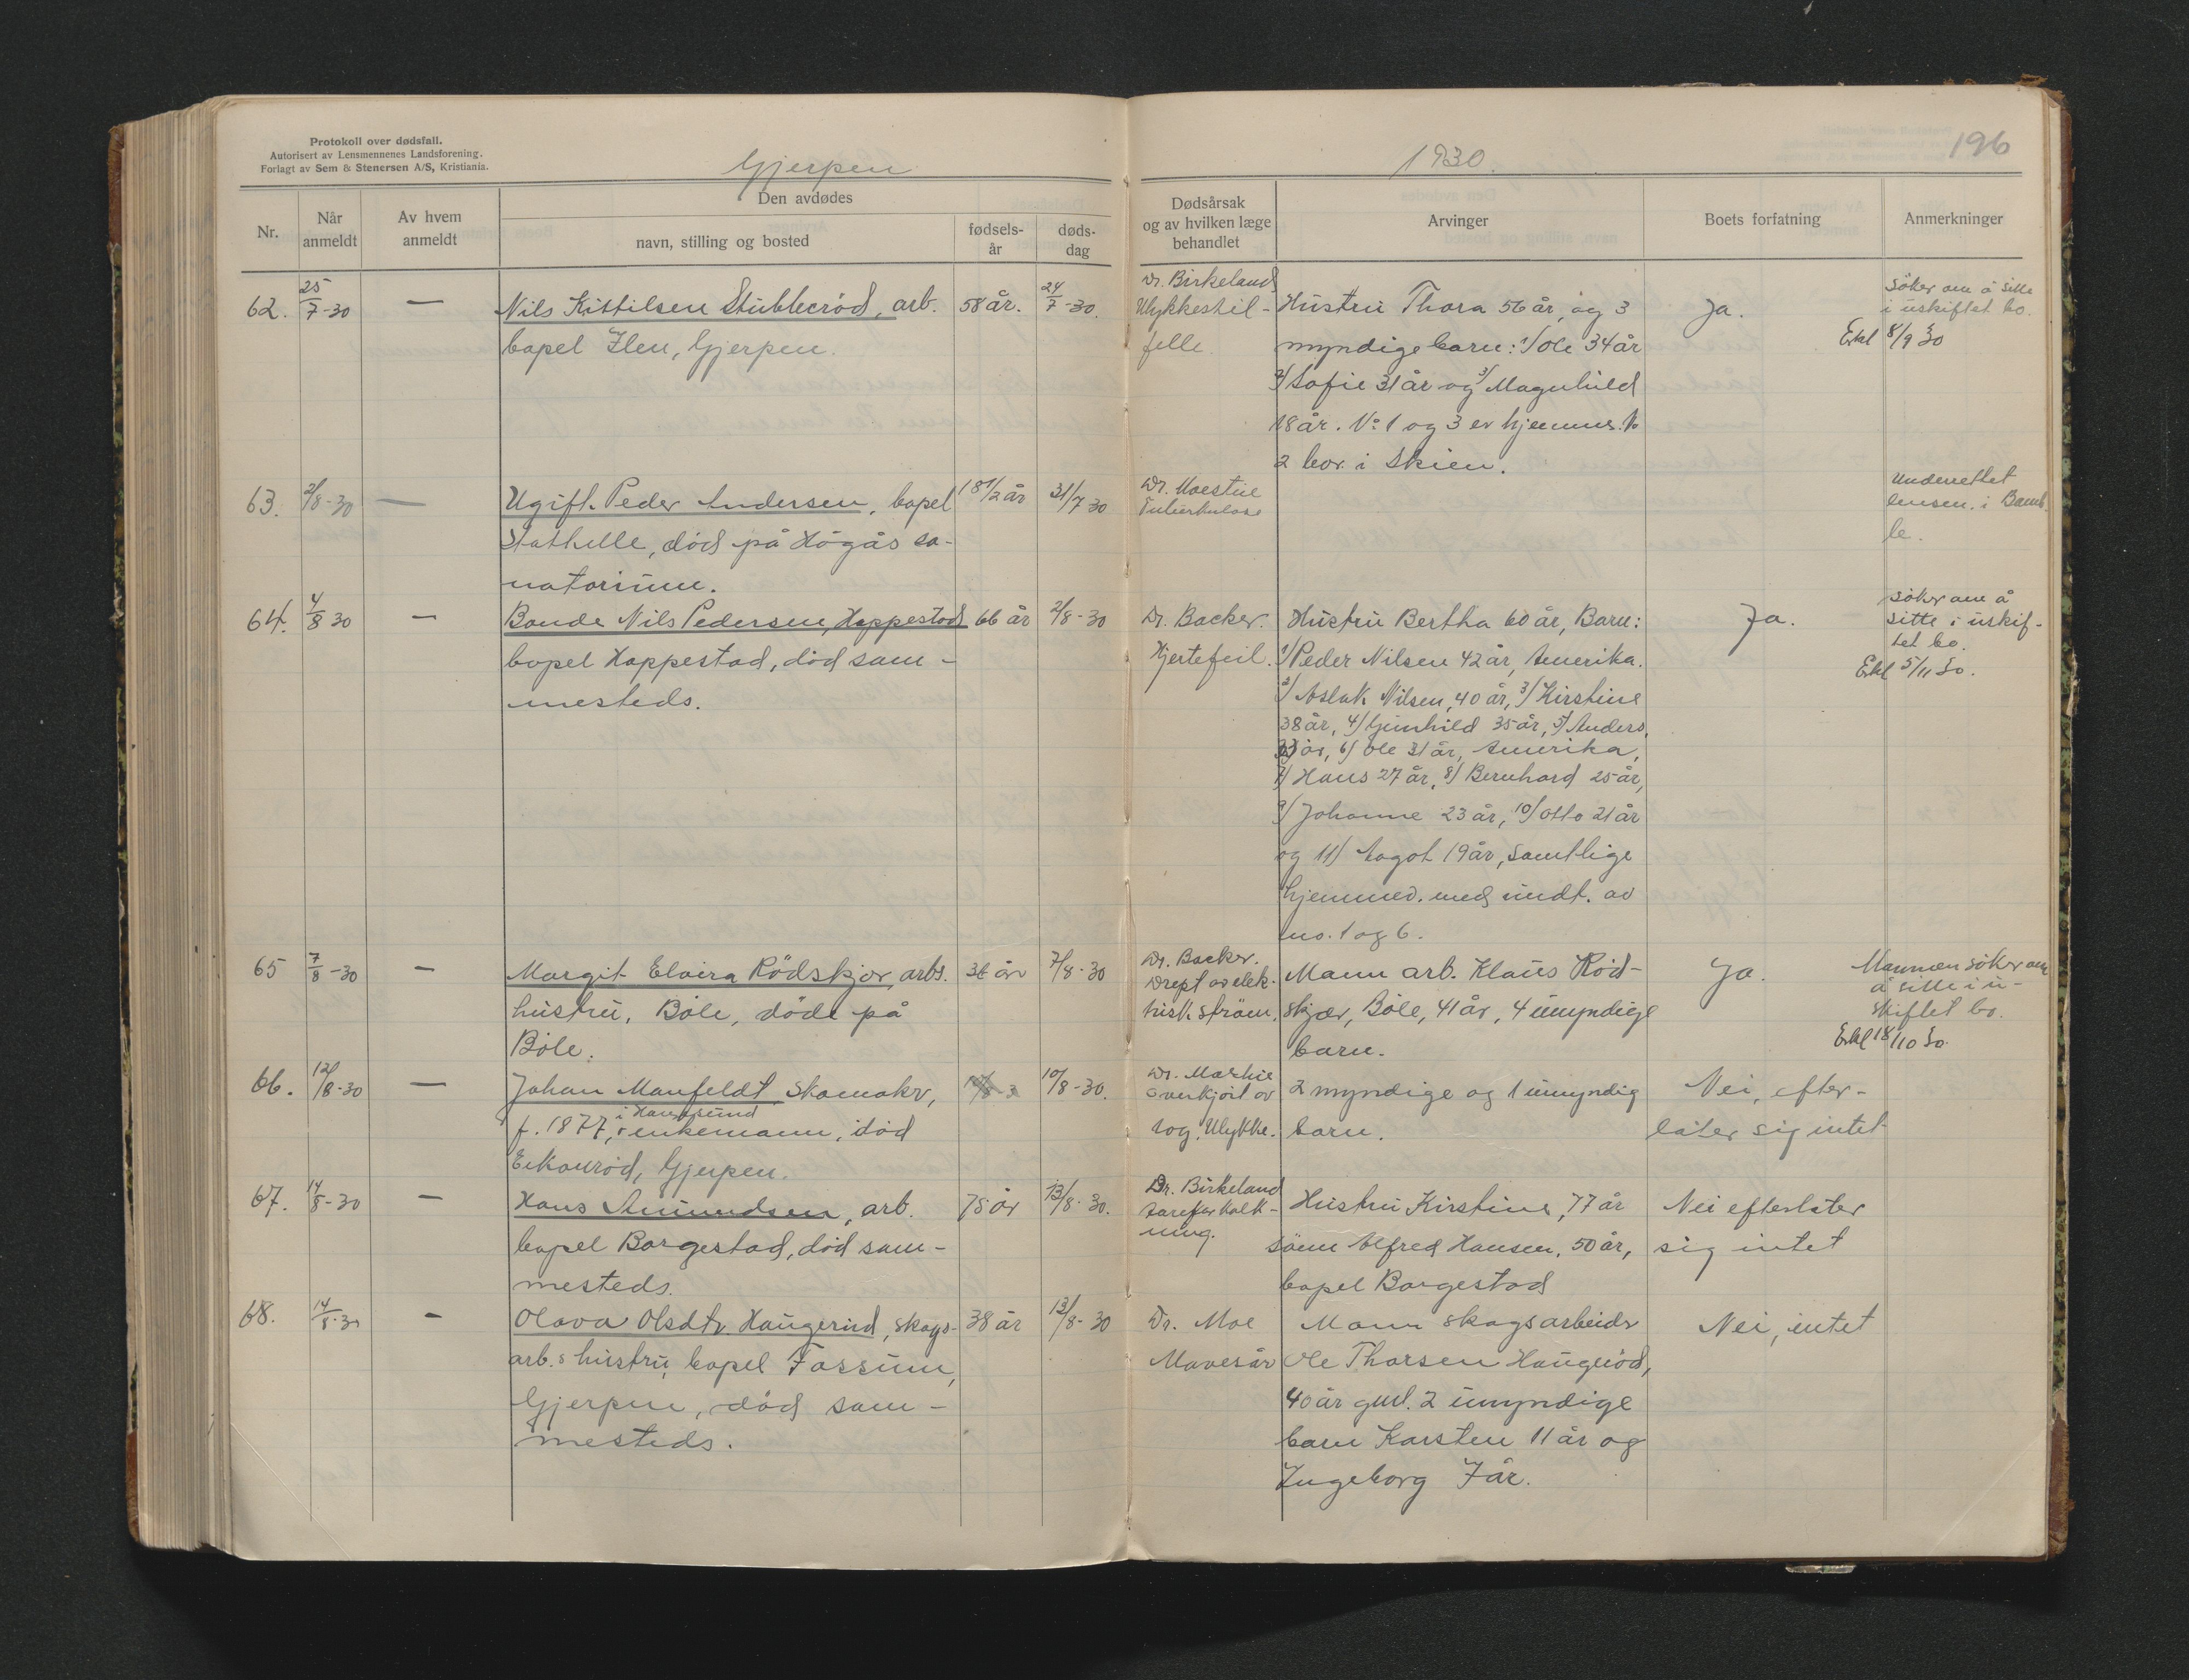 Protokoll over dødsfall.
Autorisert av Lensmennenes Landsforening.
Forlagt av Sem & Stenersen A/S, Kristiania.
Gjerpen
1930.
196
Nr.
Når anmeldt
Av hvem anmeldt
Den avdødes
navn, stilling og bosted
fødsels-år
døds-dag
Dødsårsak og av hvilken læge behandlet
Arvinger
Boets forfatning
Anmerkninger
62. 25/7-30 —
Nils Kittilsen Stubberöd, arb.
bopel Ilen, Gjerpen.
58 år. 24/7-30.
Dr. Birkeland
Ulykkestil-
felle.
Hustru Thora 56 år, og 3
myndige barn: 1/ Ole 34 år
2/ Sofie 31 år og 3/ Magnhild
18 år. No 1 og 3 er hjemme. No
2 bor i Skien.
Ja.
Söker om å sitte
i uskiftet bo.
Erkl 8/9 30
63. 2/8-30 —
Ugift Peder Andersen, bopel
Stathelle, död på Högås sa-
natorium.
18 1/2 år 31/7 30
Dr. Moestue
Tuberkulose
Underrettet
lensm. i Bamb
le.
64. 4/8 30 —
Bonde Nils Pedersen, Hoppestad
bopel Hoppestad, död sam-
mesteds.
66 år 2/8-30
Dr. Backer.
Hjertefeil.
Hustru Bertha 60 år, Barn:
1/ Peder Nilsen 42 år, Amerika.
2/ Aslak Nilsen, 40 år, 3/ Kirstine
38 år, 4/ Gunhild 35 år, 5/ Anders,
33 år, 6/ Ole 31 år, Amerika,
7/ Hans 27 år, 8/ Bernhard 25 år,
9/ Johanne 23 år, 10/ Otto 21 år
og 11/ Aagot 19 år, samtlige
hjemmev. med undt. av
no. 1 og 6.
Ja.
Söker om å
sitte i uskif-
tet bo.
Erkl 5/11 30.
65 7/8-30 —
Margit Elvira Rödskjær, arbs.
hustru, Böle, döde på
Böle.
36 år 7/8-30
Dr. Backer.
Drept av elek-
trisk ström.
Mann arb. Klaus Röd-
skjær, Böle, 41 år, 4 umyndige
barn.
Ja.
Mannen söker om
å sitte i u-
skiftet bo.
Erkl 18/10 30.
66. 12/8-30 —
Johan Manfeldt Skomaker,
i Haugesund
f. 1877, enkemann, död
Eikonröd, Gjerpen.
10/8-30.
Overkjört av
tog. Ulykke.
2 myndige og 1 umyndig
barn.
Nei, efter-
later sig intet
67. 14/8-30 —
Hans Amundsen, arb.
bopel Borgestad, död sam-
mesteds.
75 år 13/8-30.
Dr. Birkeland
Åreforkalk-
ning.
Hustru Kirstine, 77 år
sönn Alfred Hansen, 50 år,
bopel Borgestad
Nei efterlater
sig intet
68. 14/8-30 —
Olava Olsdtr. Haugerud, skogs-
arb.s hustru, bopel Fossum,
Gjerpen, död sam-
mesteds.
38 år 13/8-30
Dr. Moe
Mavesår
Mann skogsarbeider
Ole Thorsen Haugeröd,
40 år gml. 2 umyndige
barn Karsten 11 år og
Ingeborg 7 år.
Nei, intet